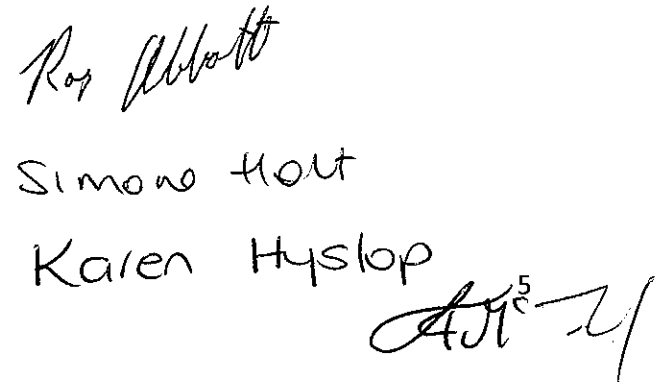 Roy Abbott
Simone Holt
Karen Hyslop
5